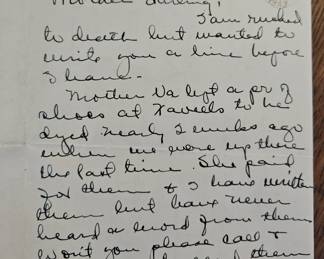 Mother darling,
I am rushed
to death but wanted to
write you a line before
I leave -
Mother Va left a pr of
shoes at Xavels to be
dyed nearly 2 weeks ago
when we were up there
the last time. She paid
for them & I have written
them but have never
heard a word from them
Won't you please call &
them